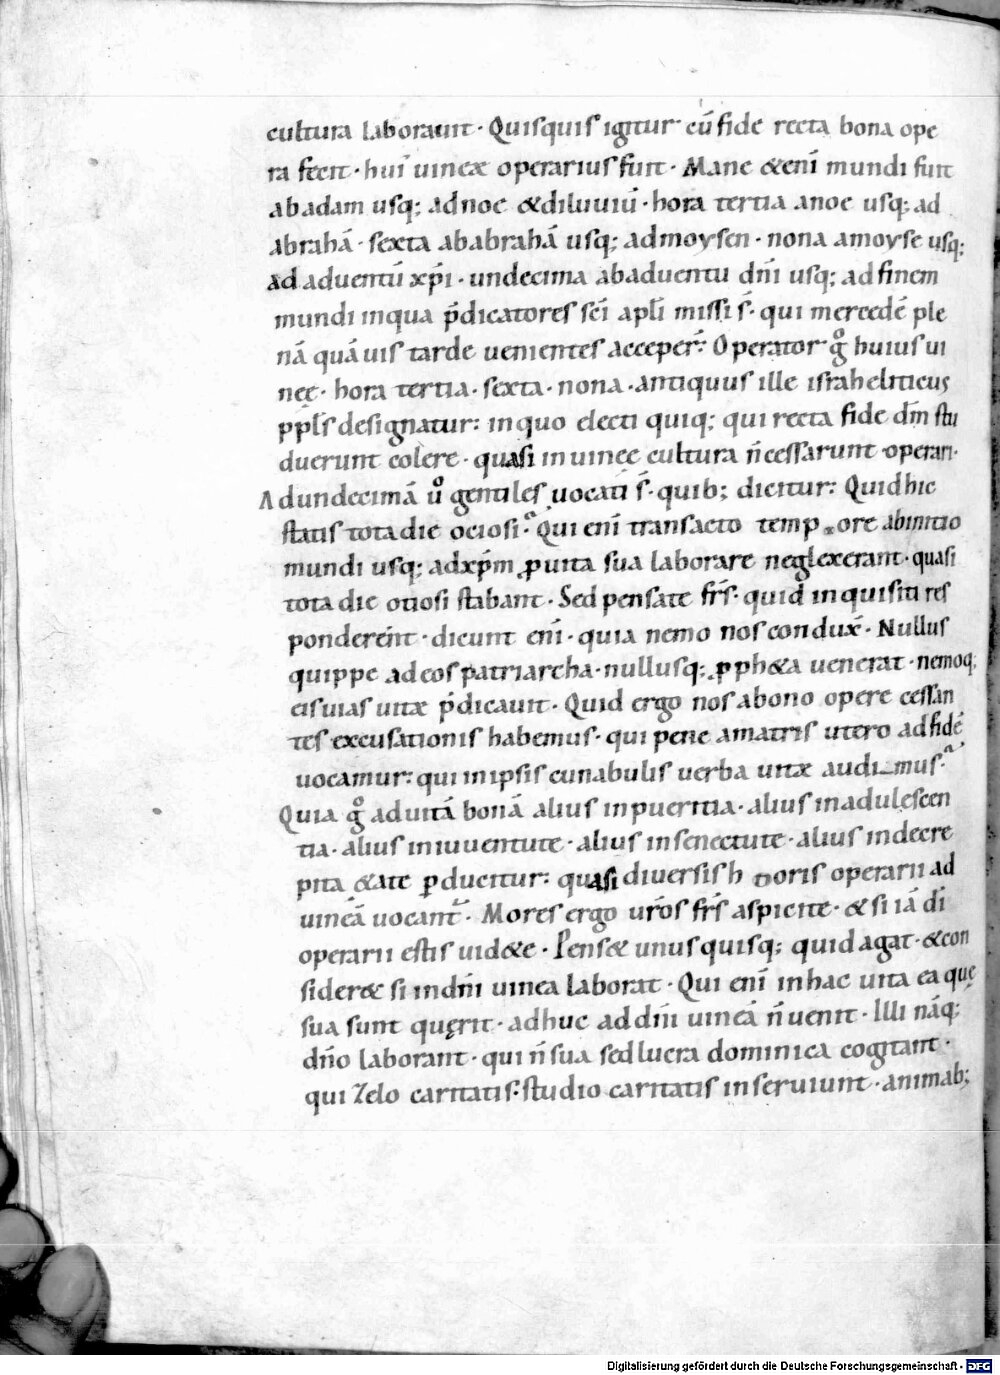 cultura laborauit · Quisquis igitur cū fide recta bona ope
ra fecit · hui᷒ uineæ operarius fuit · Mane &eni̅ mundi fuit
abadam usq; adnoe &diluuiū · hora tertia anoe usq; ad
abrahā · sexta ababrahā usq; admoysen · nona amoyse usq;
ad aduentū xp̅i · undecima abaduentu dn̅i usq; adfinem
mundi inqua p̅dicatores sc̅i apl̅i missi s̅ · qui mercedē ple
nā quāuis tarde uenientes acceper̅ : Operator gͦ huius ui
neę · hora tertia · sexta · nona · antiquus ille israheliticus
ppl̅s designatur : inquo electi quiq; qui recta fide dm̅ stu
duerunt colere · quasi inuineę cultura n̅cessarunt operari ·
Adundecimā uͦ gentiles uocati s̅ · quib; dicitur : Quid hic
statis tota die ociosi · Qui eni̅ transacto temp ore abinitio
mundi usq; adxp̅m ꝓuita sua laborare neglexerant · quasi
tota die otiosi stabant · Sed pensate fr̅s · quid inquisiti res
ponderent · dicunt eni̅ · quia nemo nos condux̅ · Nullus
quippe adeos patriarcha · nullusq; ꝓph&a uenerat · nemoq;
eis uias uitæ p̅dicauit · Quid ergo nos abono opere cessan
tes excusationis habemus · qui pene amatris utero adfidē
uocamur : qui inipsis cunabulis uerba uitæ audi mus ·
Quia gͦ aduitā bonā alius inpueritia · alius inadulescen
tia · alius iniuuentute · alius insenectute · alius indecre
pita &ate ꝑducitur : quasi diuersis h oris operarii ad
uineā uocant᷑ · Mores ergo ur̅os fr̅s aspicite · & si iā di
operarii estis uid&e · Pens& unusquisq; quid agat · &con
sider& si indn̅i uinea laborat · Qui eni̅ inhac uita ea quę
sua sunt quęrit · adhuc addn̅i uineā n̅uenit · Illi nāq;
dn̅o laborant · qui n̅ sua sed lucra dominica cogitant ·
qui zelo caritatis · studio caritatis inseruiunt · animab;
Digitalisierung gefördert durch die Deutsche Forschungsgemeinschaft · DFG